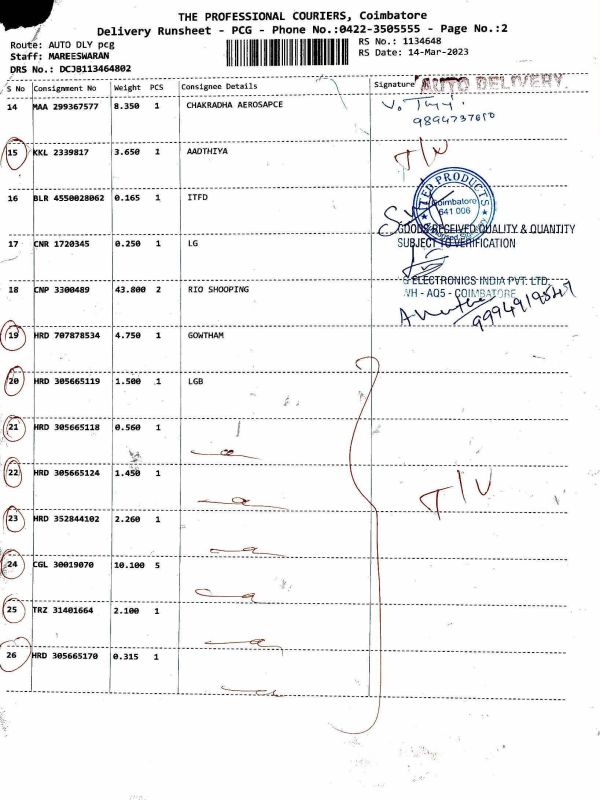 THE PROFESSIONAL COURIERS, Coimbatore
Delivery Runsheet - PCG - Phone No.:0422-3505555 - Page No.:2
Route: AUTO DLY pcg
RS No.: 1134648
Staff: MAREESWARAN
RS Date: 14-Mar-2023
DRS No.: DCJB113464802
S No Consignment No Weight PCS Consignee Details Signature AUTO DELIVERY
14 MAA 299367577 8.350 1 CHAKRADHA AEROSAPCE
9894737610
15 KKL 2339817 3.650 1 AADTHIYA
T/W
16 BLR 4550028062 0.165 1 ITFD
PRODUCTS
Coimbatore
641 006
GOODS RECEIVED QUALITY & QUANTITY
17 CNR 1720345 0.250 1 LG
SUBJECT TO VERIFICATION
ELECTRONICS INDIA PVT. LTD.
18 CNP 3300489 43.800 2 RIO SHOOPING
WH - AQ5 - COIMBATORE
19 HRD 707878534 4.750 1 GOWTHAM
20 HRD 305665119 1.500 1 LGB
21 HRD 305665118 0.560 1
22 HRD 305665124 1.450 1
T/W
23 HRD 352844102 2.260 1
24 CGL 30019070 10.100 5
25 TRZ 31401664 2.100 1
26 HRD 305665170 0.315 1